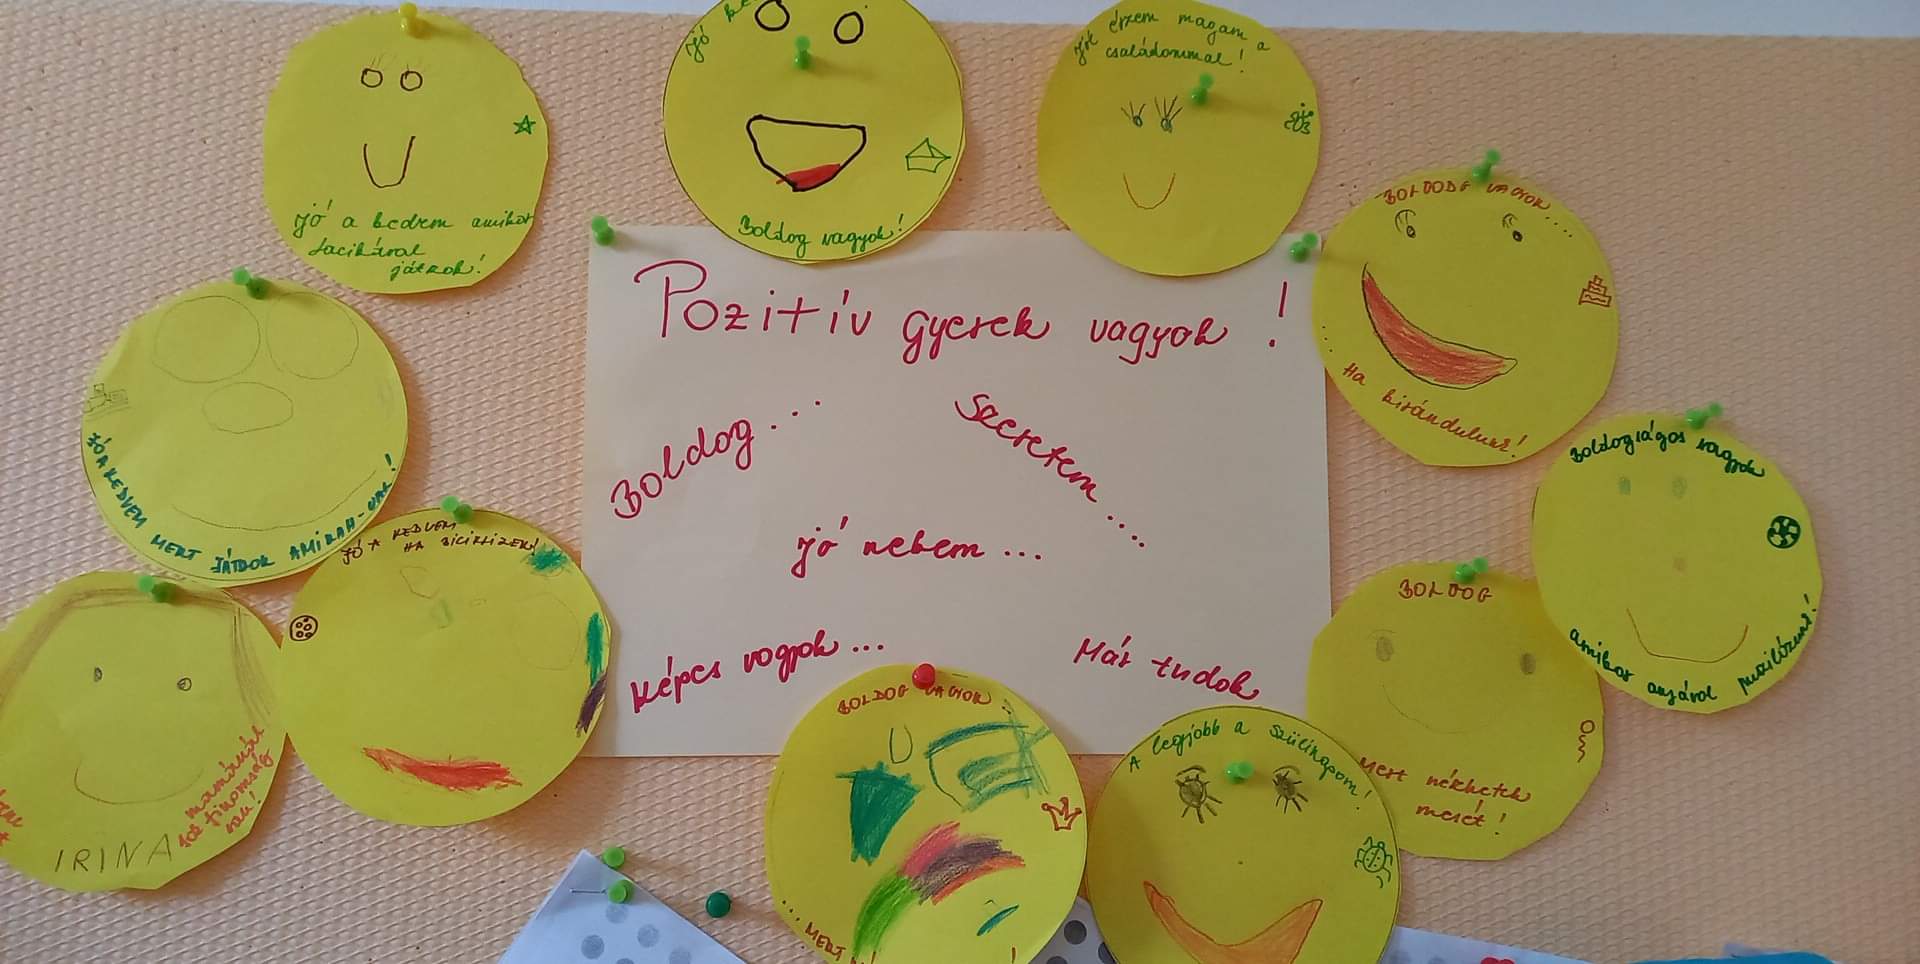 Jó a kedvem amikor
Lacikával
játzok!
Jó
Boldog vagyok!
Jól érzem magam a
családommal!
BOLDOG VAGYOK....
... Ha kirándulunk!
Pozitív gyerek vagyok!
Boldog...
Szeretem...
Jó nekem...
Képes vagyok...
Már tudok
JÓ A KEDVEM MERT JÁTDOK AMIRAH-VAL!
JÓ A KEDVEM
HA BICIKLIZEK!
mamámnál
sok finomság
van!
IRINA
Boldogságos vagyok
amikor anyával puzzlözünk!
BOLDOG
Mert nézhetek
mesét!
BOLDOG VAGYOK
....MERT
A legjobb a szülinapom!